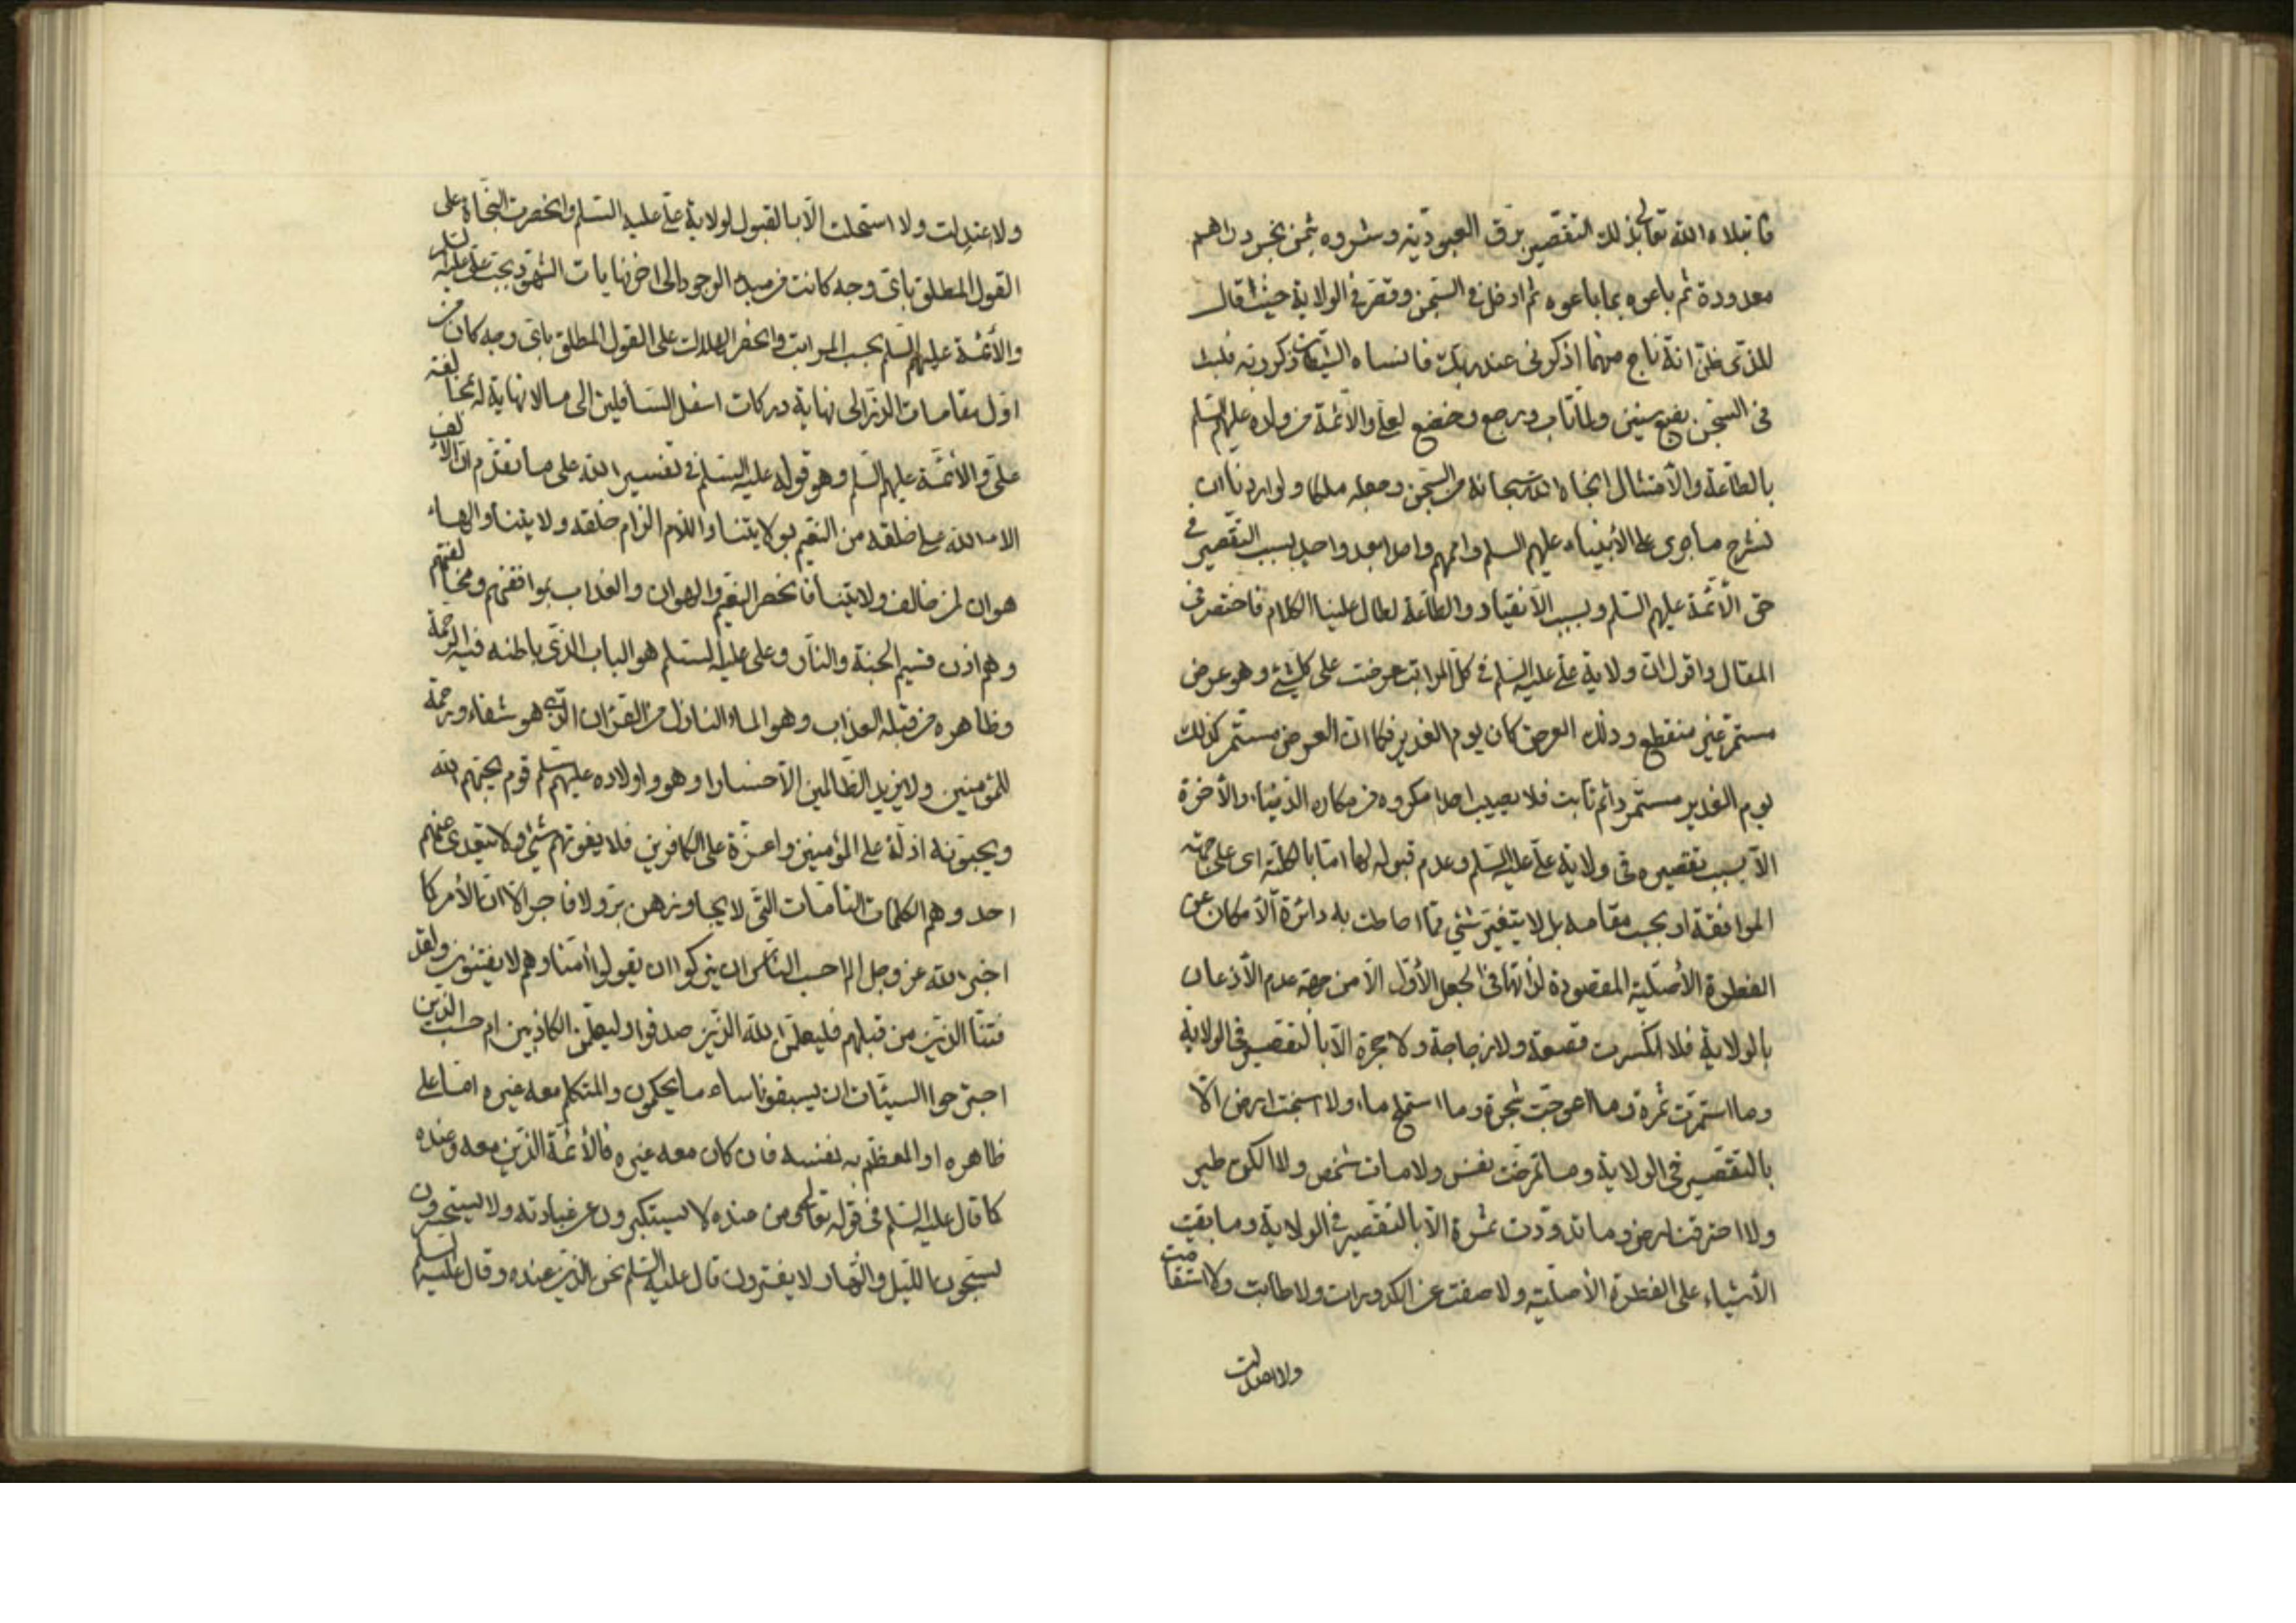 فابتلاه الله تعالى بذلك التقصير برق العبودية وشروه بثمن بخس دراهم
معدودة ثم باعوه بما باعوه ثم ادخل في السجن وقصر في الولاية حيث قال
للذي ظن انه ناج منهما اذكرني عند ربك فانساه الشيطان ذكر ربه فلبث
في السجن بضع سنين ولما تاب ورجع وخضع لعلي والأئمة من ولده عليهم السلم
بالطاعة والأمتثال انجاه الله سبحانه من السجن وجعله ملكا ولو اردنا ان
نشرح ما جرى على الأنبياء عليهم السلم واممهم واحدا بعد واحد بسبب التقصير في
حق الأئمة عليهم السلم وبسبب الأنقياد والطاعة لطال علينا الكلام فاختصر في
المقال واقول ان ولاية علي عليه السلم في كل المراتب عرضت على كل شئ وهو عرض
مستمر غير منقطع وذلك العرض كان يوم الغدير فكما ان العرض مستمر كذلك
يوم الغدير مستمر دائم ثابت فلا يصيب احدا مكروه من مكاره الدنيا والأخرة
الا بسبب تقصيره في ولاية علي عليه السلم وعدم قبوله لها اما بالكلية اى على جهة
الموافقة او بحسب مقامه بل لا يتغير شئ مما احاطت به دائرة الأمكان عن
الفطرة الأصلية المقصودة لذاتها في الجعل الأول الا من جهة عدم الأذعان
بالولاية فلا انكسرت قصعة ولا زجاجة ولا جرة الا بالتقصير في الولاية
وما استمرت ثمرة وما اعوجت شجرة وما استملح ماء ولا اسبخت ارض الا
بالتقصير في الولاية وما تمرضت نفس ولا مات شخص ولا الكن طير
ولا احترقت ارض وما تدودت ثمرة الا بالتقصير في الولاية وما بقيت
الأشياء على الفطرة الأصلية ولا صفت عن الكدورات ولا طابت ولا استقامت
ولا اعتدلت
ولا اعتدلت ولا استحلت الا بالقبول لولاية علي عليه السلم وانحصرت النجاة على
القول المطلق باى وجه كانت من مبدء الوجود الى اخر نهايات الشهود بحب علي عليه السلم
والأئمة عليهم السلم بحسب المراتب وانحصر الهلاك على القول المطلق باى وجه كان من
اول مقامات الذر الى نهاية دركات اسفل السافلين الى ما لا نهاية له بمخالفة
علي والأئمة عليهم السلم وهو قوله عليه السلم في تفسير الله على ما تقدم ان الألف
الاء الله على خلقه من النعيم بولايتنا واللام الزام خلقه ولايتنا والهاء
هوان لمن خالف ولايتنا فانحصر النعيم والهوان والعذاب بموافقتهم ومخالفتهم
وهم اذن قسيم الجنة والنار وعلي عليه السلم هو الباب الذي باطنه فيه الرحمة
وظاهره من قبله العذاب وهو الماء النازل من القران الذي هو شفاء ورحمة
للمؤمنين ولا يزيد الظالمين الا خسارا وهو واولاده عليهم السلم قوم يحبهم الله
ويحبونه اذلة على المؤمنين واعزة على الكافرين فلا يفوتهم شئ ولا يتعدى عنهم
احد وهم الكلمات التامات التي لا يجاوزهن بر ولا فاجر الا ان الأمر كما
اخبر الله عز وجل الم احسب الناس ان يتركوا ان يقولوا امنا وهم لا يفتنون ولقد
فتنا الذين من قبلهم فليعلمن الله الذين صدقوا وليعلمن الكاذبين ام حسب الذين
اجترحوا السيئات ان يسبقونا ساء ما يحكمون والمتكلم معه غيره اما على
ظاهره او المعظم به نفسه فان كان معه غيره فالأئمة الذين معه وعنده
كما قال عليه السلم في قوله تعالى ومن عنده لا يستكبرون عن عبادته ولا يستحسرون
يسبحون الليل والنهار لا يفترون قال عليه السلم نحن الذين عنده وقال عليه السلم